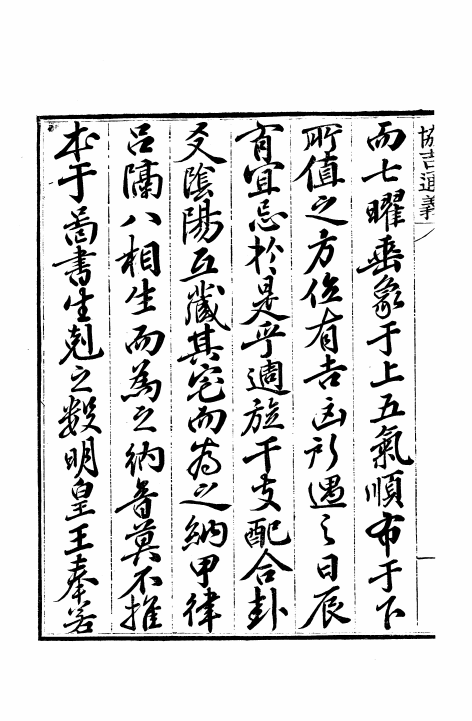 協吉通義
而七曜垂象于上五氣順布于下
所值之方位有吉凶所遇之日辰
有宜忌於是乎週旋干支配合卦
爻陰陽互藏其宅而為之納甲律
呂隔八相生而為之納音莫不推
本于圖書生剋之數明皇王奉若